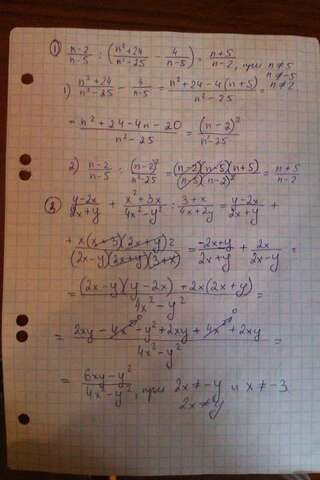 ① (n-2)/(n-5) : ((n²+24)/(n²-25) - 4/(n-5)) = (n+5)/(n-2), при n≠5
n≠-5
n≠2
1) (n²+24)/(n²-25) - 4/(n-5) = (n²+24-4(n+5))/(n²-25) =
= (n²+24-4n-20)/(n²-25) = (n-2)²/(n²-25)
2) (n-2)/(n-5) : (n-2)²/(n²-25) = (n-2)(n-5)(n+5)/((n-5)(n-2)²) = (n+5)/(n-2)
② (y-2x)/(2x+y) + (x²+3x)/(4x²-y²) : (3+x)/(4x+2y) = (y-2x)/(2x+y) +
+ x(x+3)(2x+y)2/((2x-y)(2x+y)(3+x)) = (-2x+y)/(2x+y) + 2x/(2x-y) =
= ((2x-y)(y-2x)+2x(2x+y))/(4x²-y²) =
= (2xy-4x²-y²+2xy+4x²+2xy)/(4x²-y²) =
= (6xy-y²)/(4x²-y²), при 2x≠-y и x≠-3
2x≠y